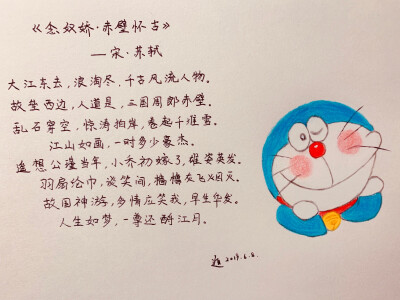 《念奴娇·赤壁怀古》
——宋·苏轼
大江东去,浪淘尽,千古风流人物。
故垒西边,人道是,三国周郎赤壁。
乱石穿空,惊涛拍岸,卷起千堆雪。
江山如画,一时多少豪杰。
遥想公瑾当年,小乔初嫁了,雄姿英发。
羽扇纶巾,谈笑间,樯橹灰飞烟灭。
故国神游,多情应笑我,早生华发。
人生如梦,一尊还酹江月。
2019.6.8.